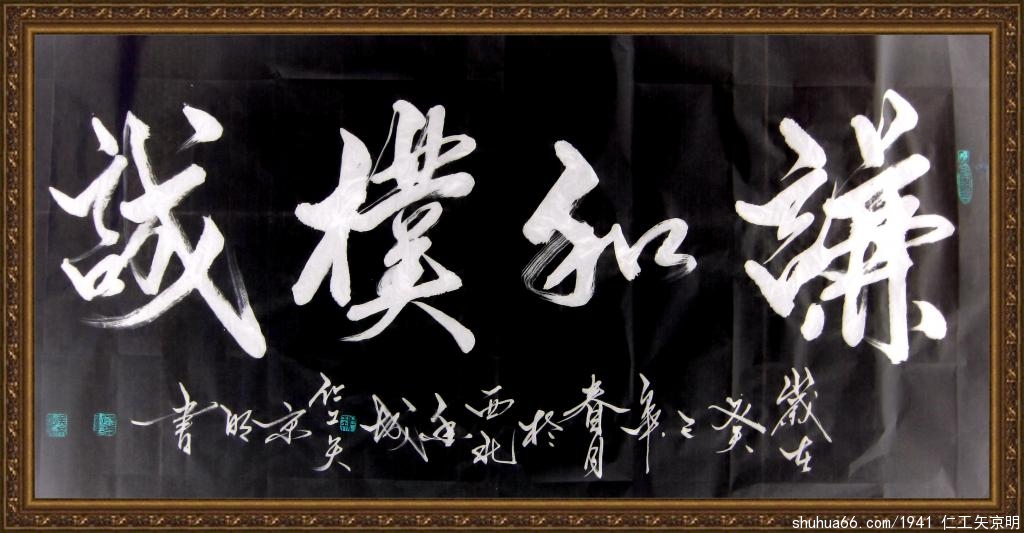 謙和樸誠
歲在癸巳年春月於西北城仁工矢京明書
shuhua66.com/1941 仁工矢京明